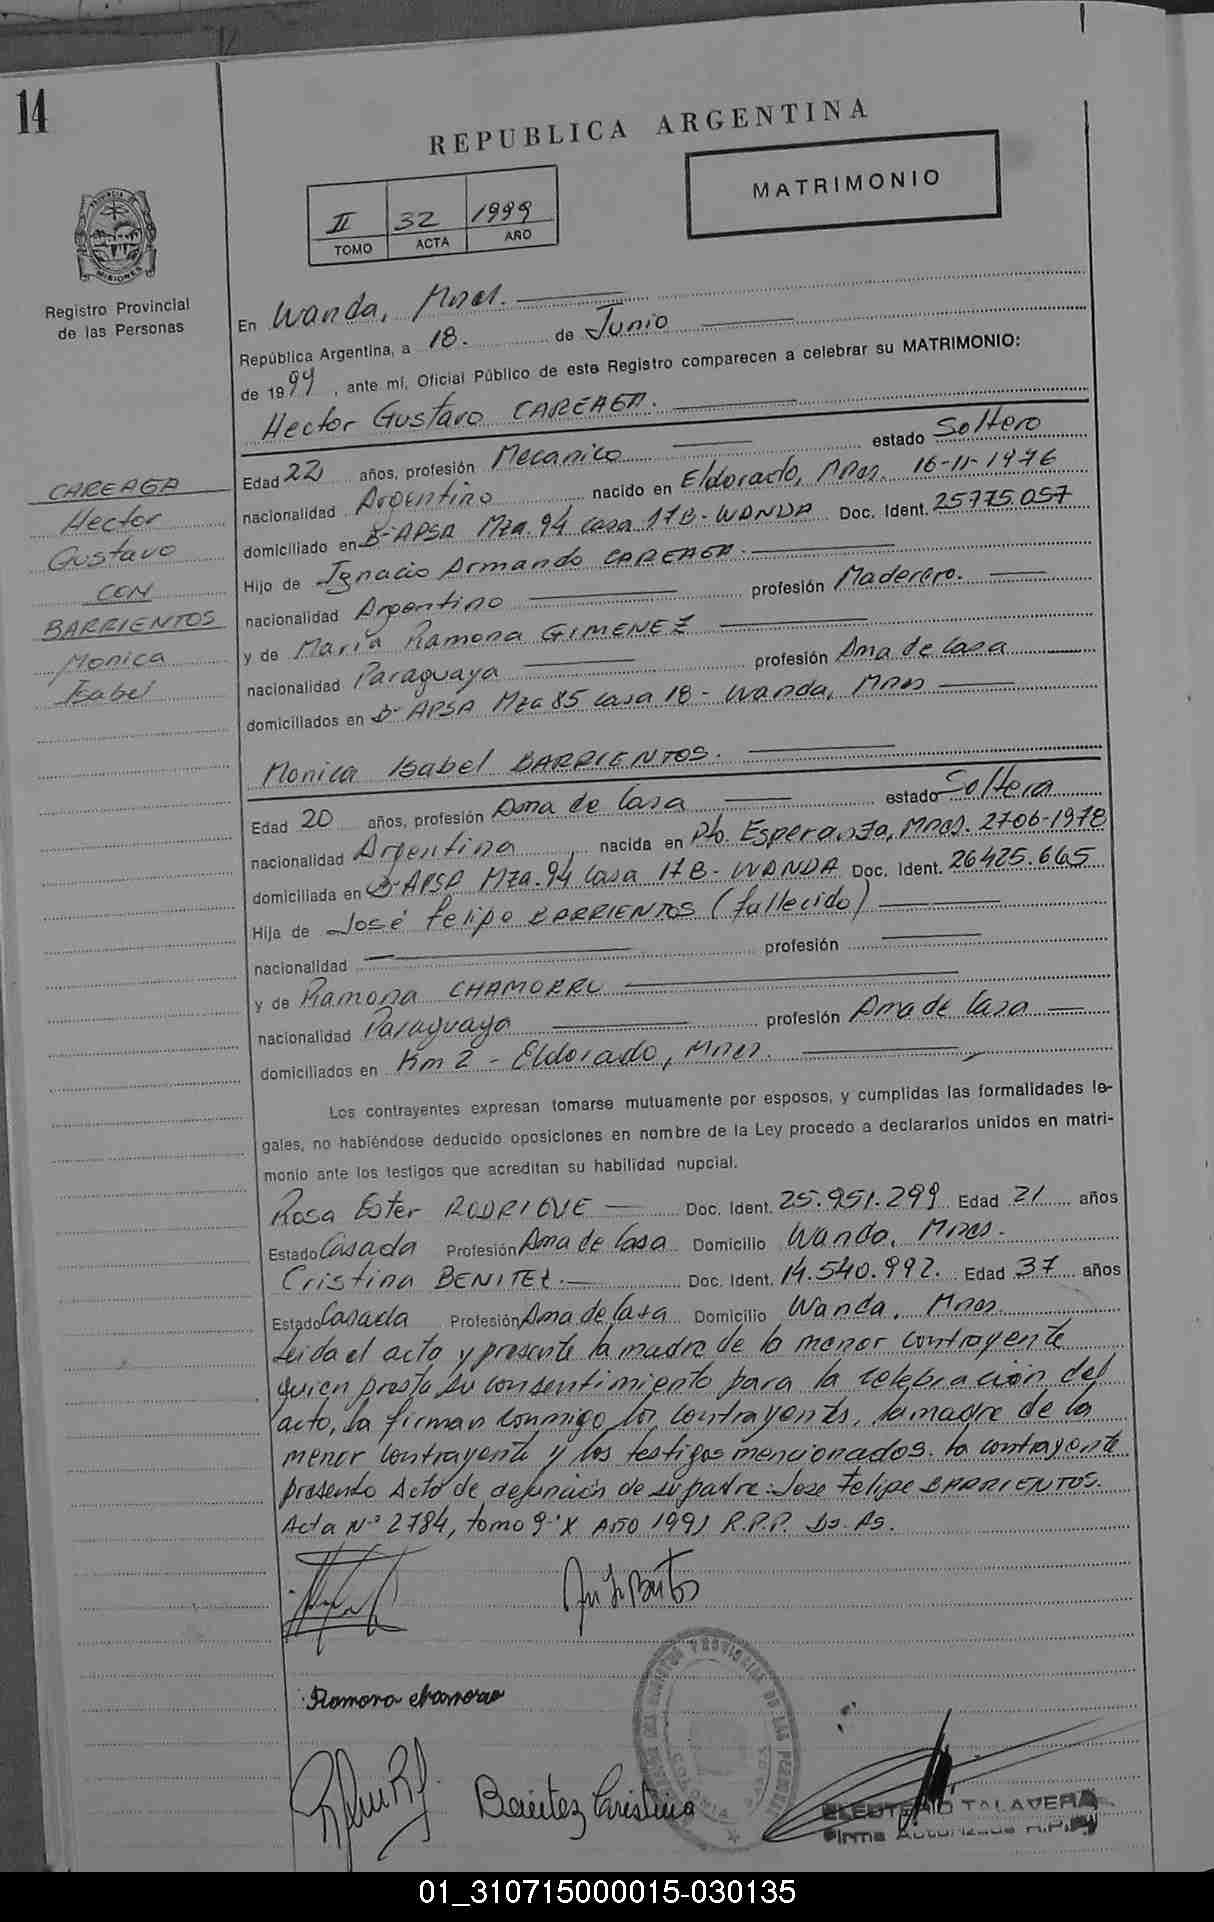 14
REPUBLICA ARGENTINA
MATRIMONIO
II 32 1999
TOMO ACTA AÑO
PROVINCIA DE MISIONES
Registro Provincial
de las Personas
En Wanda, Mnes.
República Argentina, a 18. de Junio
de 1999, ante mí, Oficial Público de este Registro comparecen a celebrar su MATRIMONIO:
Hector Gustavo CAREAGA.
Edad 22 años, profesión Mecanico estado Soltero
nacionalidad Argentino nacido en Eldorado, Mnes. 16-11-1976
domiciliado en Bº APSA Mza. 94 casa 17B - WANDA Doc. Ident. 25775.057
Hijo de Ignacio Armando CAREAGA.
nacionalidad Argentino profesión Maderero.
y de María Ramona GIMENEZ
nacionalidad Paraguaya profesión Ama de Casa
domiciliados en Bº APSA Mza 85 casa 18 - Wanda, Mnes
CAREAGA
Hector
Gustavo
CON
BARRIENTOS
Monica
Isabel
Monica Isabel BARRIENTOS.
Edad 20 años, profesión Ama de Casa estado Soltera
nacionalidad Argentina, nacida en Pto. Esperanza, Mnes. 27-06-1978
domiciliada en Bº APSA Mza. 94 Casa 17B - WANDA Doc. Ident. 26425.665
Hija de José Felipe BARRIENTOS (fallecido)
nacionalidad profesión
y de Ramona CHAMORRO
nacionalidad Paraguaya profesión Ama de Casa
domiciliados en Km 2 - Eldorado, Mnes.
Los contrayentes expresan tomarse mutuamente por esposos, y cumplidas las formalidades le-
gales, no habiéndose deducido oposiciones en nombre de la Ley procedo a declararlos unidos en matri-
monio ante los testigos que acreditan su habilidad nupcial.
Rosa Ester RODRIGUE Doc. Ident. 25.951.299 Edad 21 años
Estado Casada Profesión Ama de Casa Domicilio Wanda, Mnes.
Cristina BENITEZ. Doc. Ident. 14.540.992. Edad 37 años
Estado Casada Profesión Ama de Casa Domicilio Wanda, Mnes
Leida el acta y presente la madre de la menor contrayente
quien presta su consentimiento para la celebracion del
acto, la firman conmigo los contrayentes, la madre de la
menor contrayente y los testigos mencionados. La contrayente
presento Acta de defunción de su padre: Jose Felipe BARRIENTOS.
Acta Nº 2784, tomo 9º X Año 1991 R.P.P. Bs. As.
Ramona chamorro
Benitez Cristina
ELEUTERIO TALAVERA
Firma Autorizada R.P.P.
01_310715000015-030135